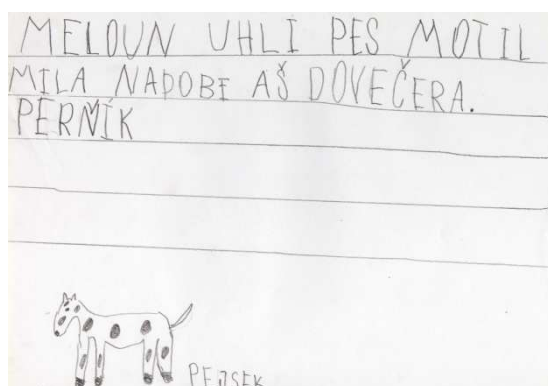 MELOUN UHLI PES MOTIL
MILA NADOBI AŠ DOVEČERA.
PERNÍK
PEJSEK